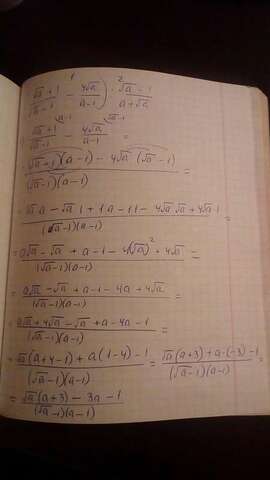 1 2
(√a + 1)/(√a - 1) - 4√a/(a - 1)) · (√a - 1)/(a + √a)
(√a + 1)/(√a - 1) - 4√a/(a - 1) =
a-1 √a-1
((√a + 1)(a - 1) - 4√a (√a - 1))/((√a - 1)(a - 1)) =
(√a·a - √a·1 + 1·a - 1·1 - 4√a·√a + 4√a·1)/((√a - 1)(a - 1)) =
= (a√a - √a + a - 1 - 4(√a)² + 4√a)/((√a - 1)(a - 1)) =
= (a√a - √a + a - 1 - 4a + 4√a)/((√a - 1)(a - 1)) =
= (a√a + 4√a - √a + a - 4a - 1)/((√a - 1)(a - 1)) =
= (√a(a + 4 - 1) + a(1 - 4) - 1)/((√a - 1)(a - 1)) = (√a(a + 3) + a·(-3) - 1)/((√a - 1)(a - 1)) =
= (√a(a + 3) - 3a - 1)/((√a - 1)(a - 1))